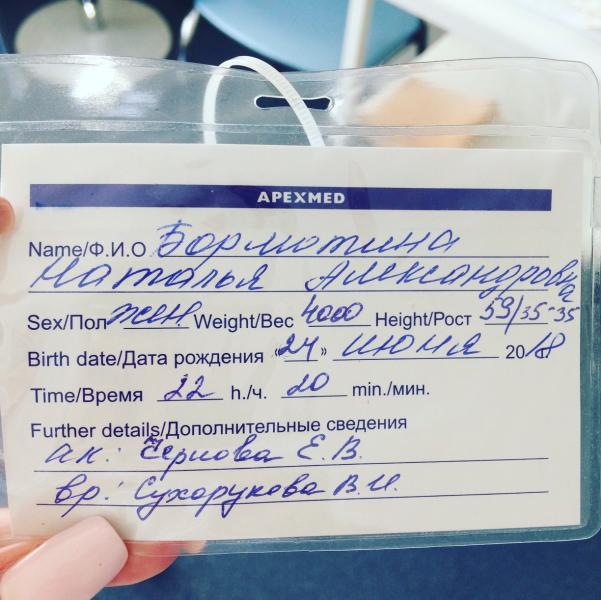 APEXMED
Name/Ф.И.О Бормотина
Наталья Александровна
Sex/Пол жен. Weight/Вес 4000 Height/Рост 59/35-35
Birth date/Дата рождения «24» июня 2018
Time/Время 22 h./ч. 20 min./мин.
Further details/Дополнительные сведения
ак: Чернова Е.В.
вр: Сухорукова В.И.